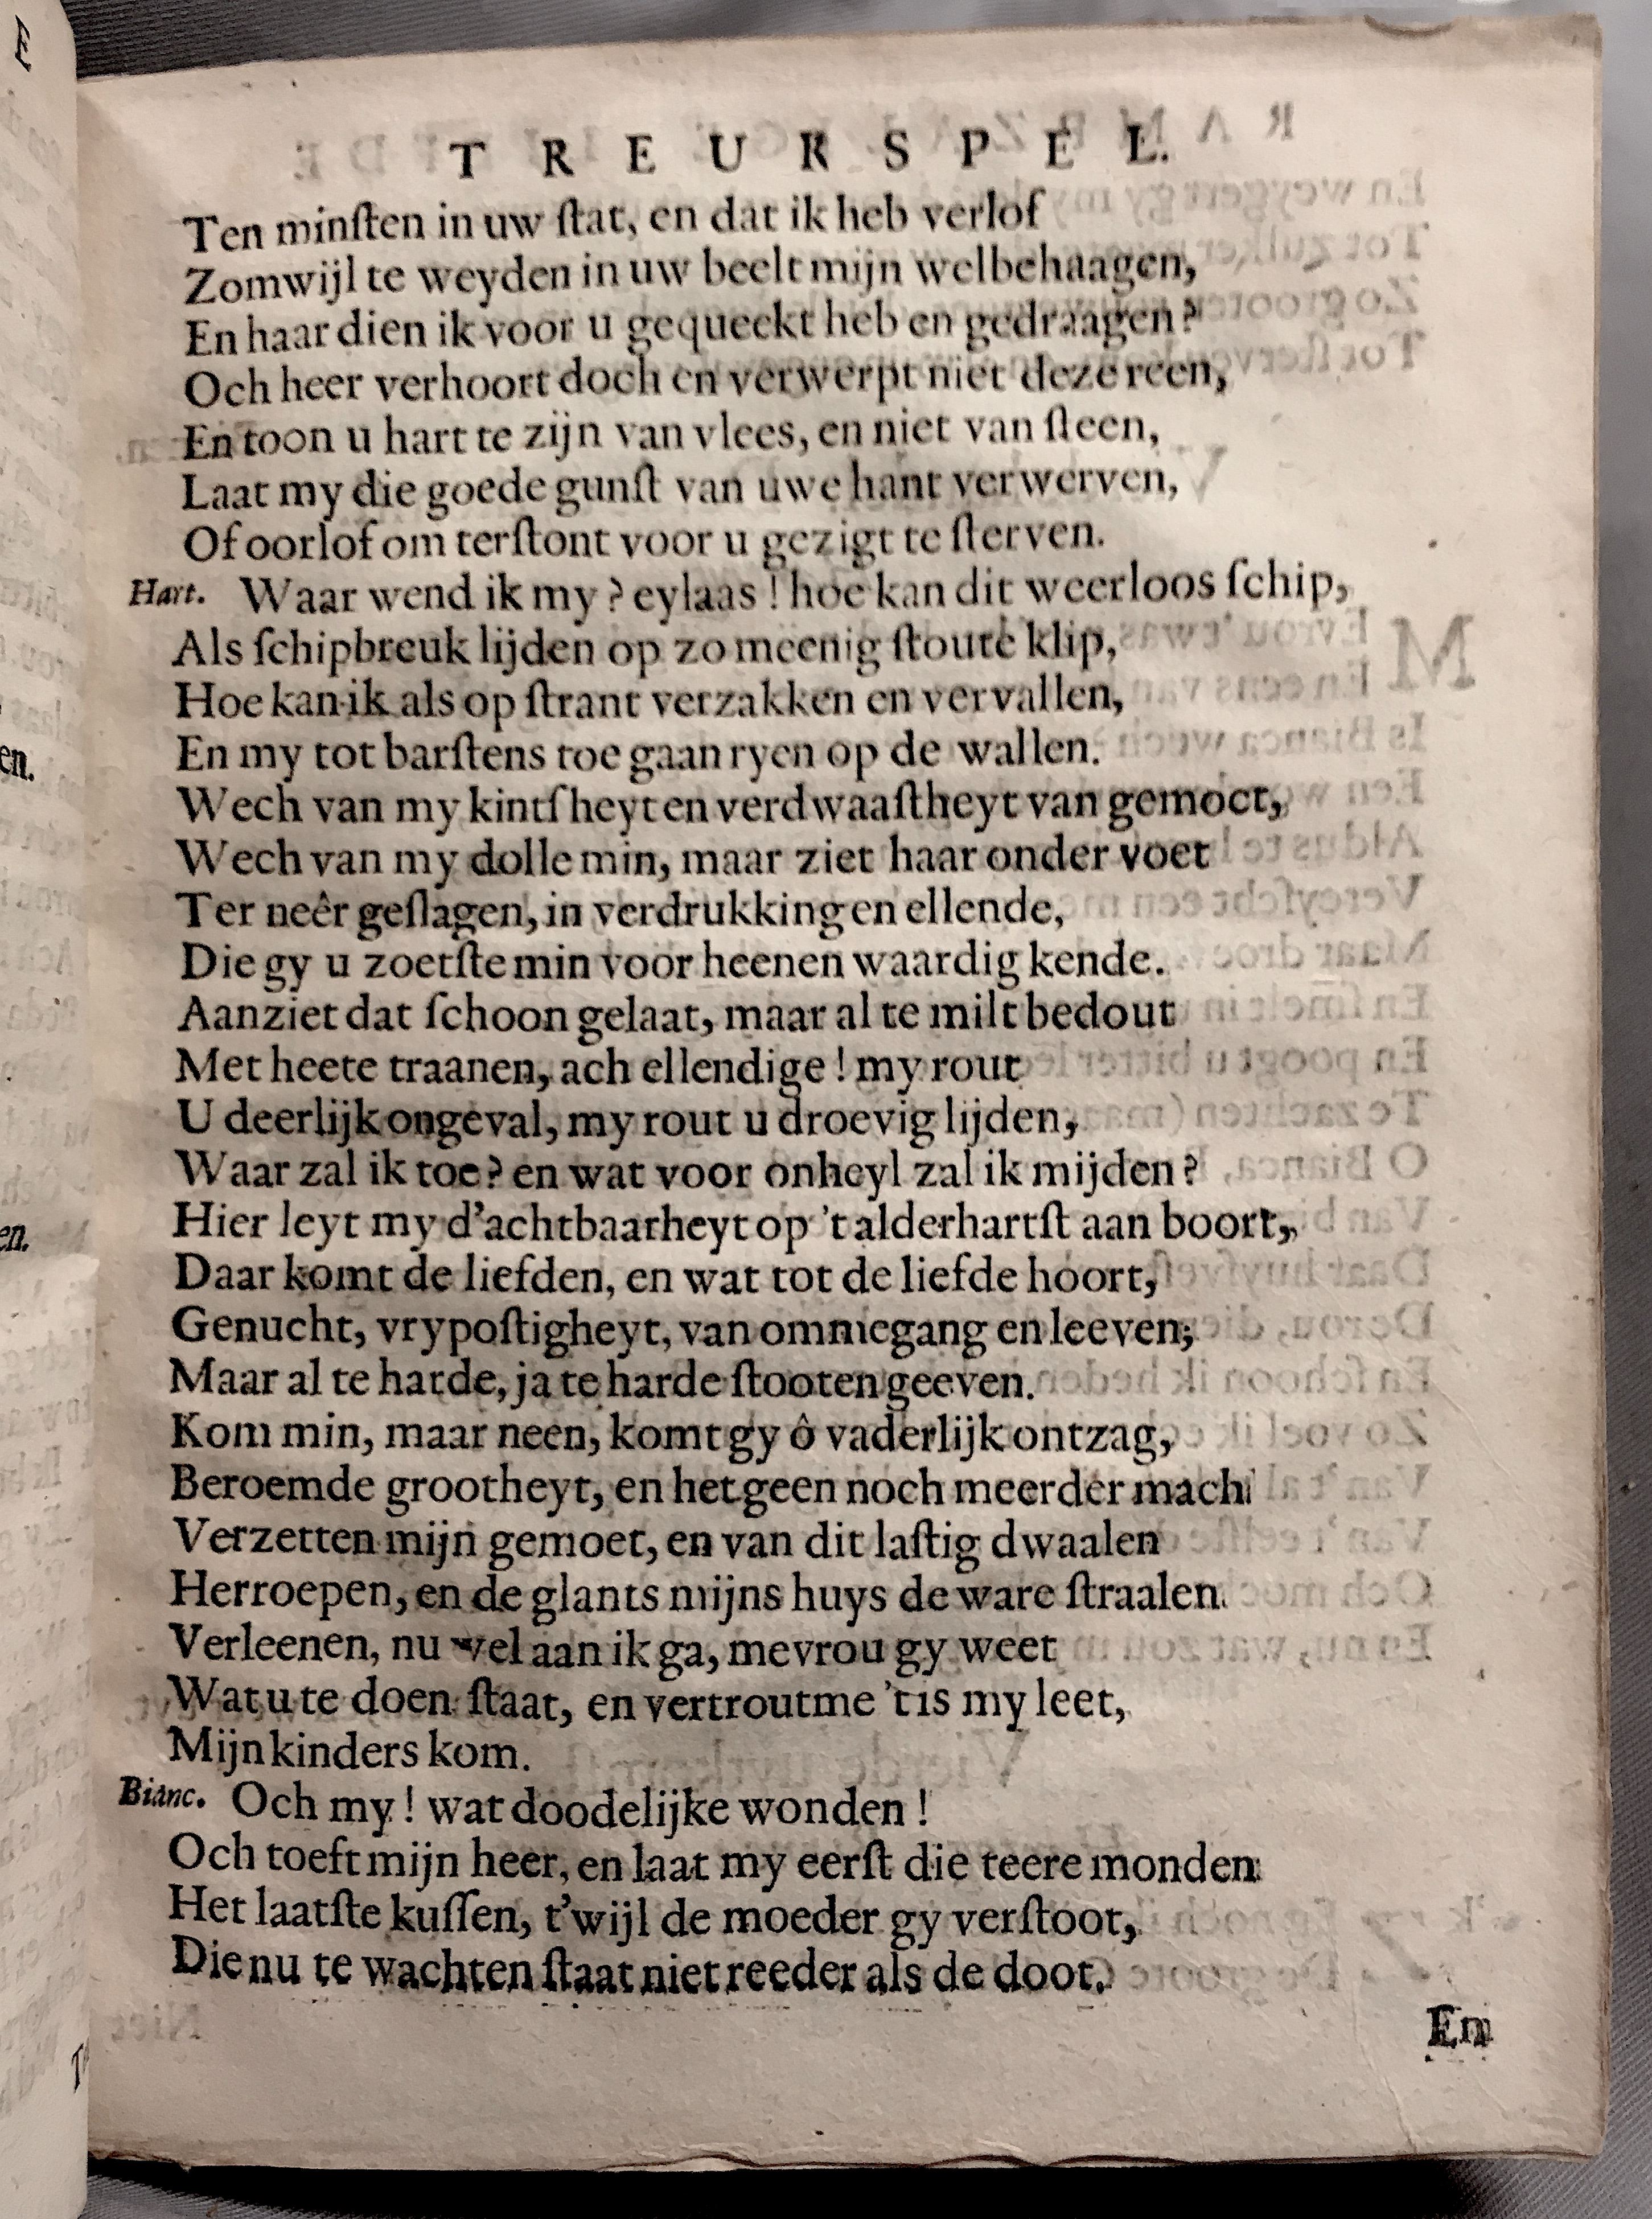 TREURSPEL.
Ten minſten in uw ſtat, en dat ik heb verlof
Zomwijl te weyden in uw beelt mijn welbehaagen,
En haar dien ik voor u gequeekt heb en gedraagen?
Och heer verhoort doch en verwerpt niet deze reen,
En toon u hart te zijn van vlees, en niet van ſteen,
Laat my die goede gunſt van uwe hant verwerven,
Of oorlof om terſtont voor u gezigt te ſterven.
Hart. Waar wend ik my? eylaas! hoe kan dit weerloos ſchip,
Als ſchipbreuk lijden op zo meenig ſtoute klip,
Hoe kan ik als op ſtrant verzakken en vervallen,
En my tot barſtens toe gaan ryen op de wallen.
Wech van my kintſheyt en verdwaaſtheyt van gemoet,
Wech van my dolle min, maar ziet haar onder voet
Ter neêr geſlagen, in verdrukking en ellende,
Die gy u zoetſte min voor heenen waardig kende.
Aanziet dat ſchoon gelaat, maar al te milt bedout
Met heete traanen, ach ellendige! my rout
U deerlijk ongeval, my rout u droevig lijden,
Waar zal ik toe? en wat voor onheyl zal ik mijden?
Hier leyt my d'achtbaarheyt op 't alderhartſt aan boort,
Daar komt de liefden, en wat tot de liefde hoort,
Genucht, vrypoſtigheyt, van ommegang en leeven;
Maar al te harde, ja te harde ſtooten geeven.
Kom min, maar neen, komt gy ô vaderlijk ontzag,
Beroemde grootheyt, en het geen noch meerder mach
Verzetten mijn gemoet, en van dit laſtig dwaalen
Herroepen, en de glants mijns huys de ware ſtraalen
Verleenen, nu wel aan ik ga, mevrou gy weet
Wat u te doen ſtaat, en vertrout me 't is my leet,
Mijn kinders kom.
Bianc. Och my! wat doodelijke wonden!
Och toeft mijn heer, en laat my eerſt die teere monden
Het laatſte kuſſen, t'wijl de moeder gy verſtoot,
Die nu te wachten ſtaat niet reeder als de doot.
En